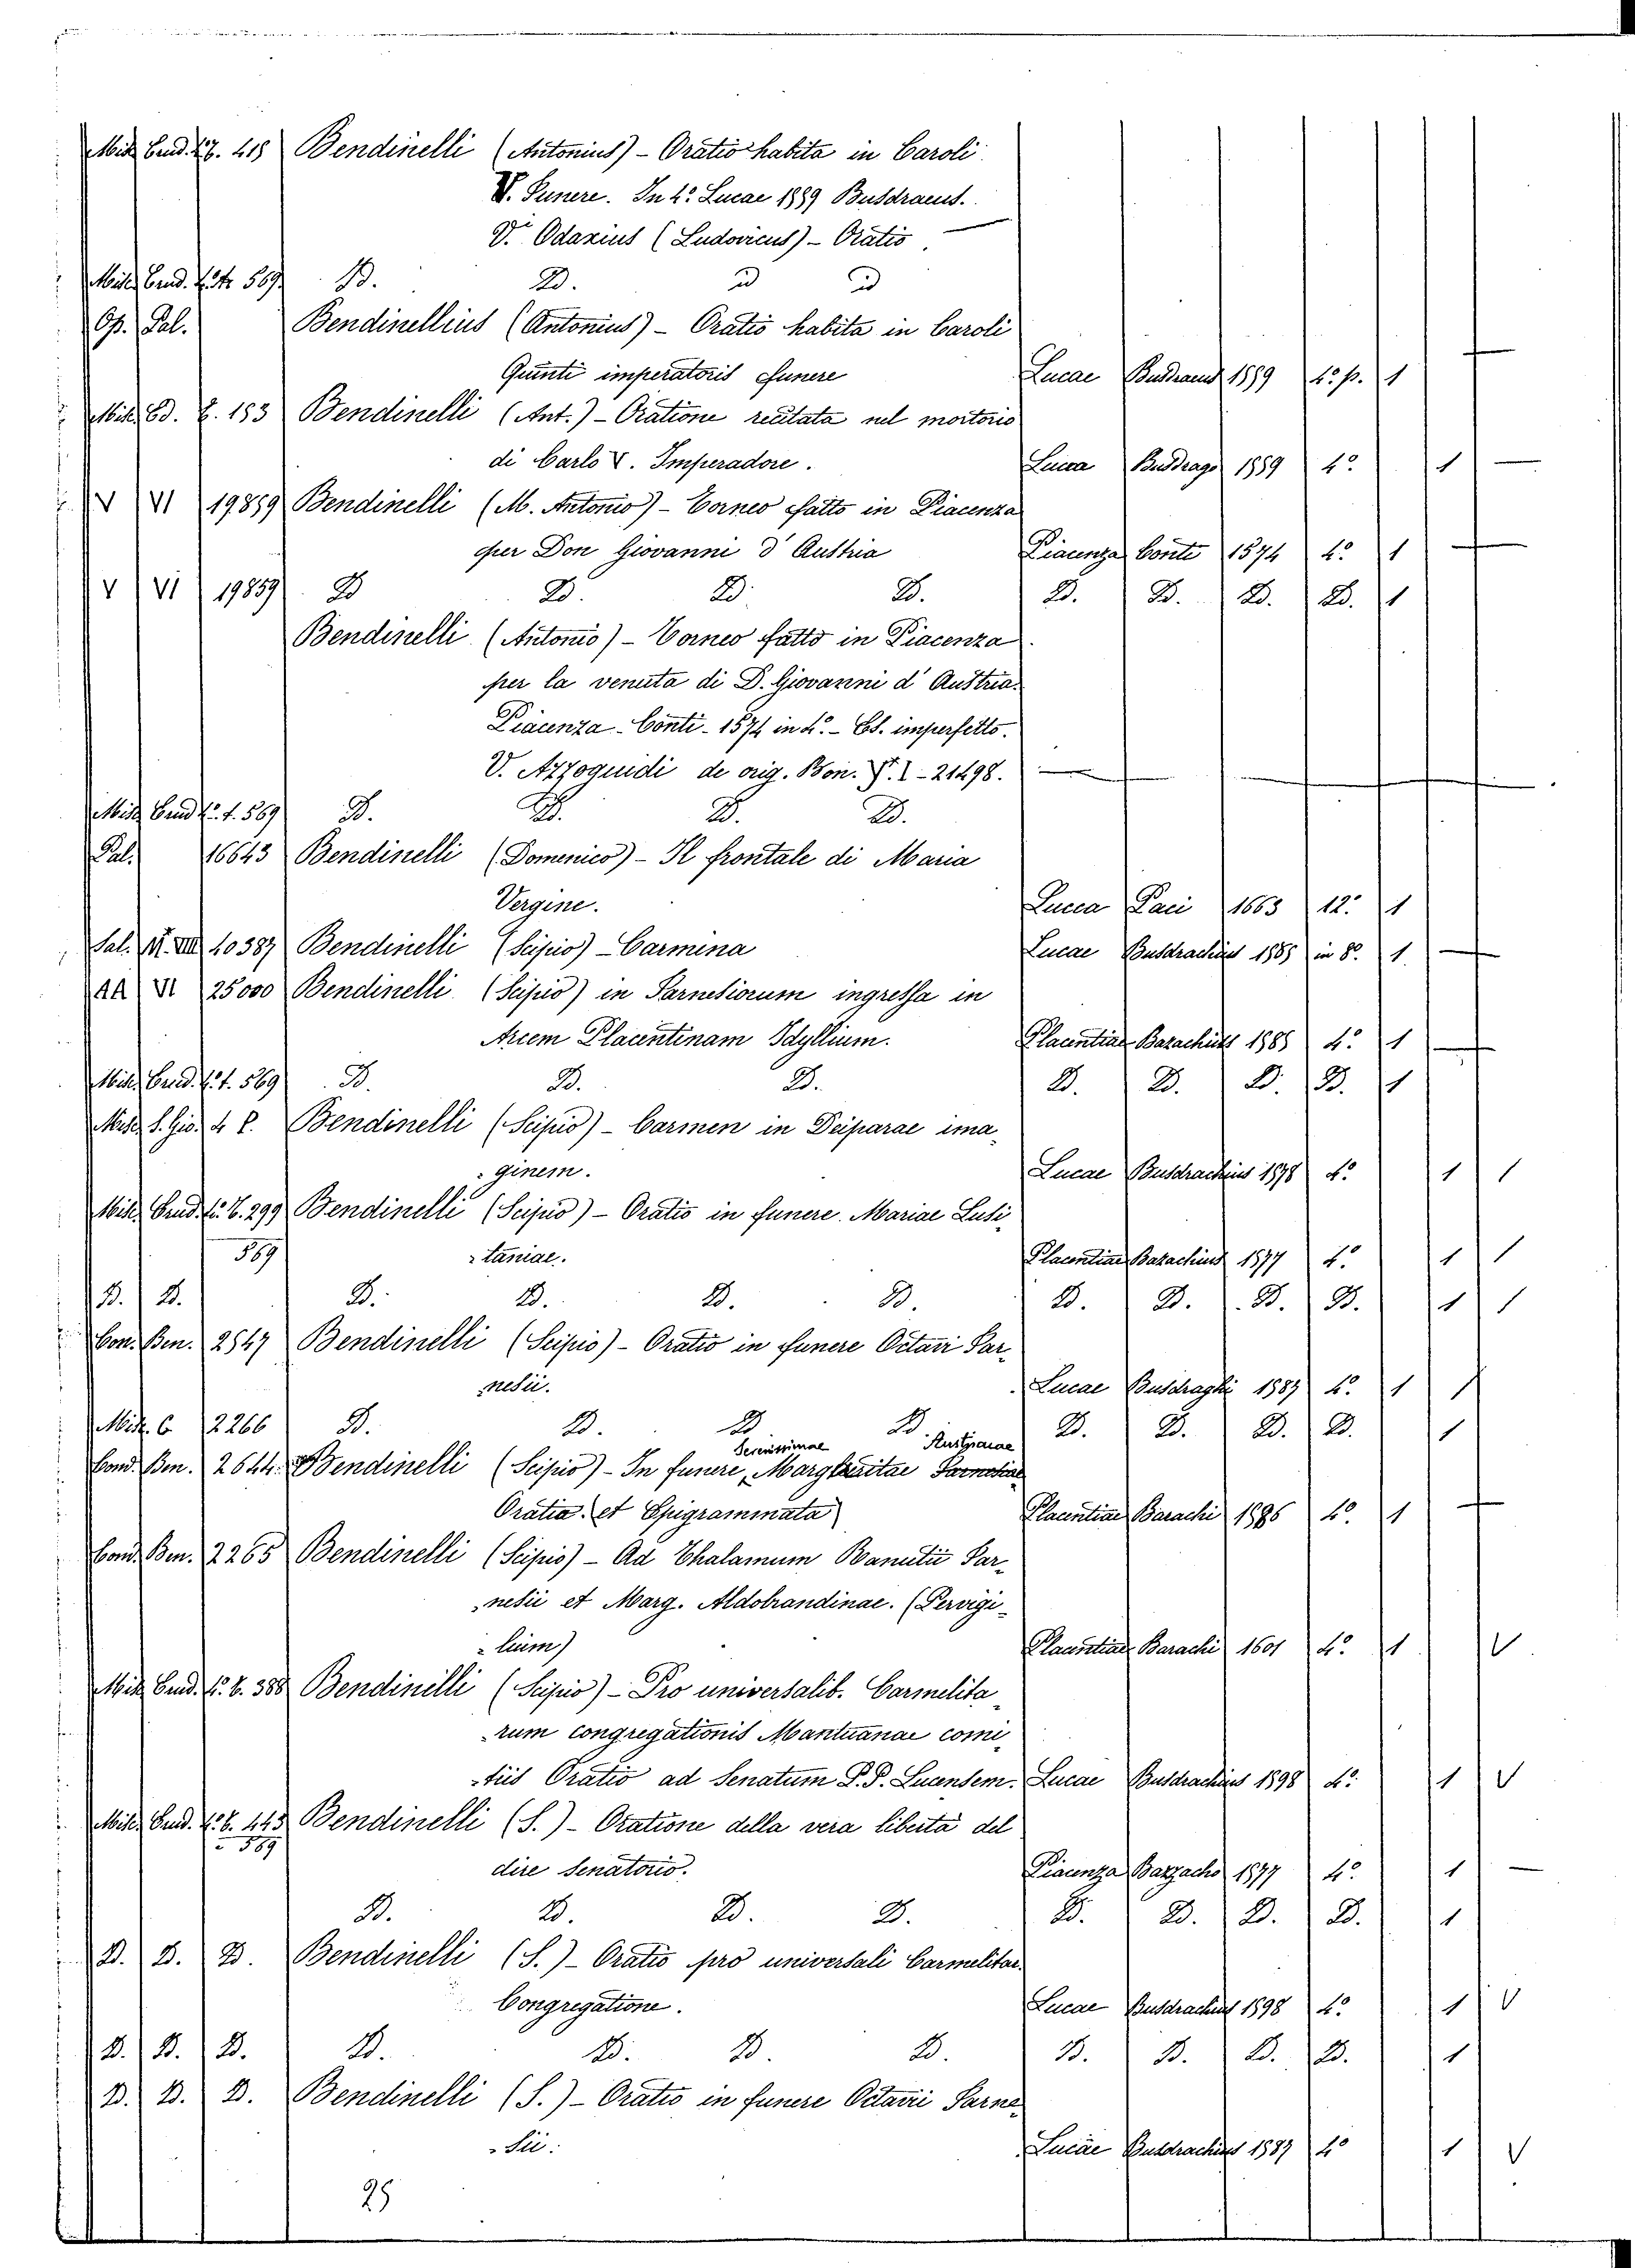 Misc. Erud. 4°. 6. 418 Bendinelli (Antonius) - Oratio habita in Caroli
V. Funere. In 4°. Lucae 1559 Busdracus.
V.i Odaxius (Ludovicus) - Oratio.
Misc. Erud. 4° t. 569. D. D. D D
Op. Pal. Bendinellius (Antonius) - Oratio habita in Caroli
Quinti imperatoris funere Lucae Busdracus 1559 4°. p. 1
Misc. Ed. 6. 153 Bendinelli (Ant.) - Oratione recitata nel mortorio
di Carlo V. Imperadore. Lucca Busdrago 1559 4° 1
V VI 19859 Bendinelli (M. Antonio) - Torneo fatto in Piacenza
per Don Giovanni d'Austria Piacenza Conti 1574 4° 1
V VI 19859 D D. D. D. D. D. D. D. 1
Bendinelli (Antonio) - Torneo fatto in Piacenza
per la venuta di D. Giovanni d'Austria.
Piacenza - Conti - 1574 in 4°. - Es. imperfetto.
V. Azzoguidi de orig. Bon. V. I - 21498.
Misc. Erud. 4° t. 569 D. D. D. D.
Pal. 16643 Bendinelli (Domenico) - Il frontale di Maria
Vergine. Lucca Paci 1663 12° 1
Sal. VIII 10387 Bendinelli (Scipio) - Carmina Lucae Busdrachius 1585 in 8° 1
AA VI 25000 Bendinelli (Scipio) in Farnesiorum ingressa in
Arcem Placentinam Idyllium. Placentiae Bazachius 1585 4° 1
Misc. Erud. 4° t. 569 D. D. D. D. D. D. D. 1
Misc. S. Gio. 4 8. Bendinelli (Scipio) - Carmen in Deiparae ima-
ginem. Lucae Busdrachius 1578 4° 1 1
Misc. Erud. 4°. 6. 299 Bendinelli (Scipio) - Oratio in funere Mariae Lusi-
569 taniae. Placentiae Bazachius 1577 4° 1 1
D. D. D. D. D. D. D. D. D. D. 1 1
Con. Ben. 2547 Bendinelli (Scipio) - Oratio in funere Octavi Far-
nesii. Lucae Busdraghi 1587 4° 1 1
Misc. 6 2266 D. D. D D. D. D. D. D. 1
Serenissimae Austriacae
Cond. Ben. 2644. Bendinelli (Scipio) - In funere Margharitae Farnesiae
Oratio et Epigrammata Placentiae Bazachi 1586 4° 1
Cond. Ben. 2265 Bendinelli (Scipio) - Ad Thalamum Ranutii Far-
nesii et Marg. Aldobrandinae. (Pervigi-
lium) Placentiae Bazachi 1601 4° 1 V
Misc. Erud. 4°. 6. 388 Bendinilli (Scipio) - Pro universalib. Carmelita-
rum congregationis Mantuanae comi-
tiis Oratio ad Senatum P.P. Lucensem. Lucae Busdrachius 1598 4° 1 V
Misc. Erud. 4°. 6. 443 Bendinelli (S.) - Oratione della vera libertà del
569 dire Senatorio. Piacenza Bazzacho 1577 4° 1
D. D. D. D. D. D. D. D. 1
D. D. D. Bendinelli (S.) - Oratio pro universali Carmelitar.
Congregatione. Lucae Busdrachius 1598 4° 1 V
D. D. D. D. D. D. D. D. D. D. D. 1
D. D. D. Bendinelli (S.) - Oratio in funere Octavii Farne-
sii. Lucae Busdrachius 1587 4° 1 V
25